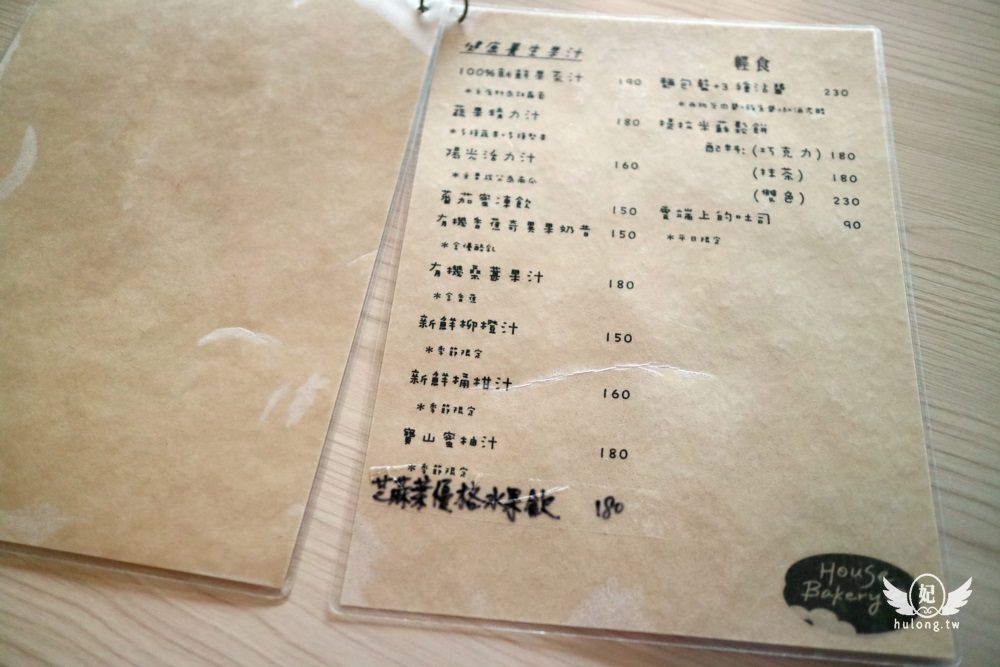 健康養生果汁
100%新鮮果蔬汁 190
蔬果精力汁 180
陽光活力汁 160
*主要成分為南瓜
蕃茄蜜凍飲 150
有機香蕉奇異果奶昔 150
*含優酪乳
有機桑葚果汁 180
*含香蕉
新鮮柳橙汁 150
*季節限定
新鮮桶柑汁 160
*季節限定
寶山蜜柚汁 180
*季節限定
芝麻葉優格水果飲 180
輕食
麵包籃+3種沾醬 230
提拉米蘇鬆餅
配料: (巧克力) 180
(抹茶) 180
(雙色) 230
雲端上的吐司 90
*平日限定
House
Bakery
妃
hulong.tw